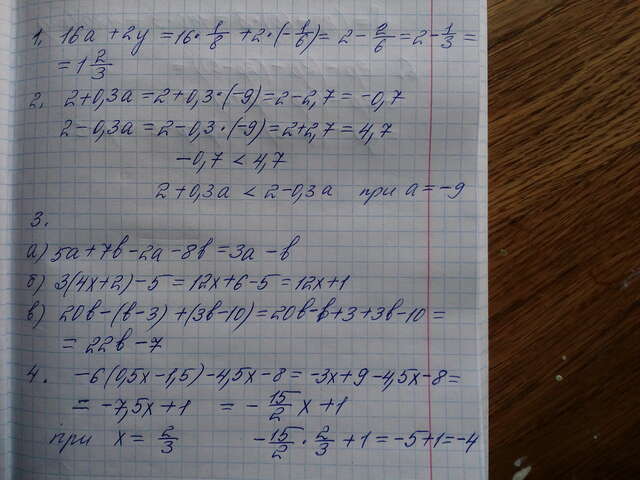 1. 16a + 2y = 16 · 1/8 + 2 · (-1/6) = 2 - 2/6 = 2 - 1/3 =
= 1 2/3
2. 2+0,3a = 2+0,3·(-9) = 2-2,7 = -0,7
2-0,3a = 2-0,3·(-9) = 2+2,7 = 4,7
-0,7 < 4,7
2+0,3a < 2-0,3a при a = -9
3.
а) 5a+7b-2a-8b = 3a - b
б) 3(4x+2)-5 = 12x+6-5 = 12x+1
в) 20b-(b-3)+(3b-10) = 20b-b+3+3b-10 =
= 22b-7
4. -6(0,5x-1,5)-4,5x-8 = -3x+9-4,5x-8 =
= -7,5x+1 = -15/2 x+1
при x = 2/3 -15/2 · 2/3 + 1 = -5+1 = -4